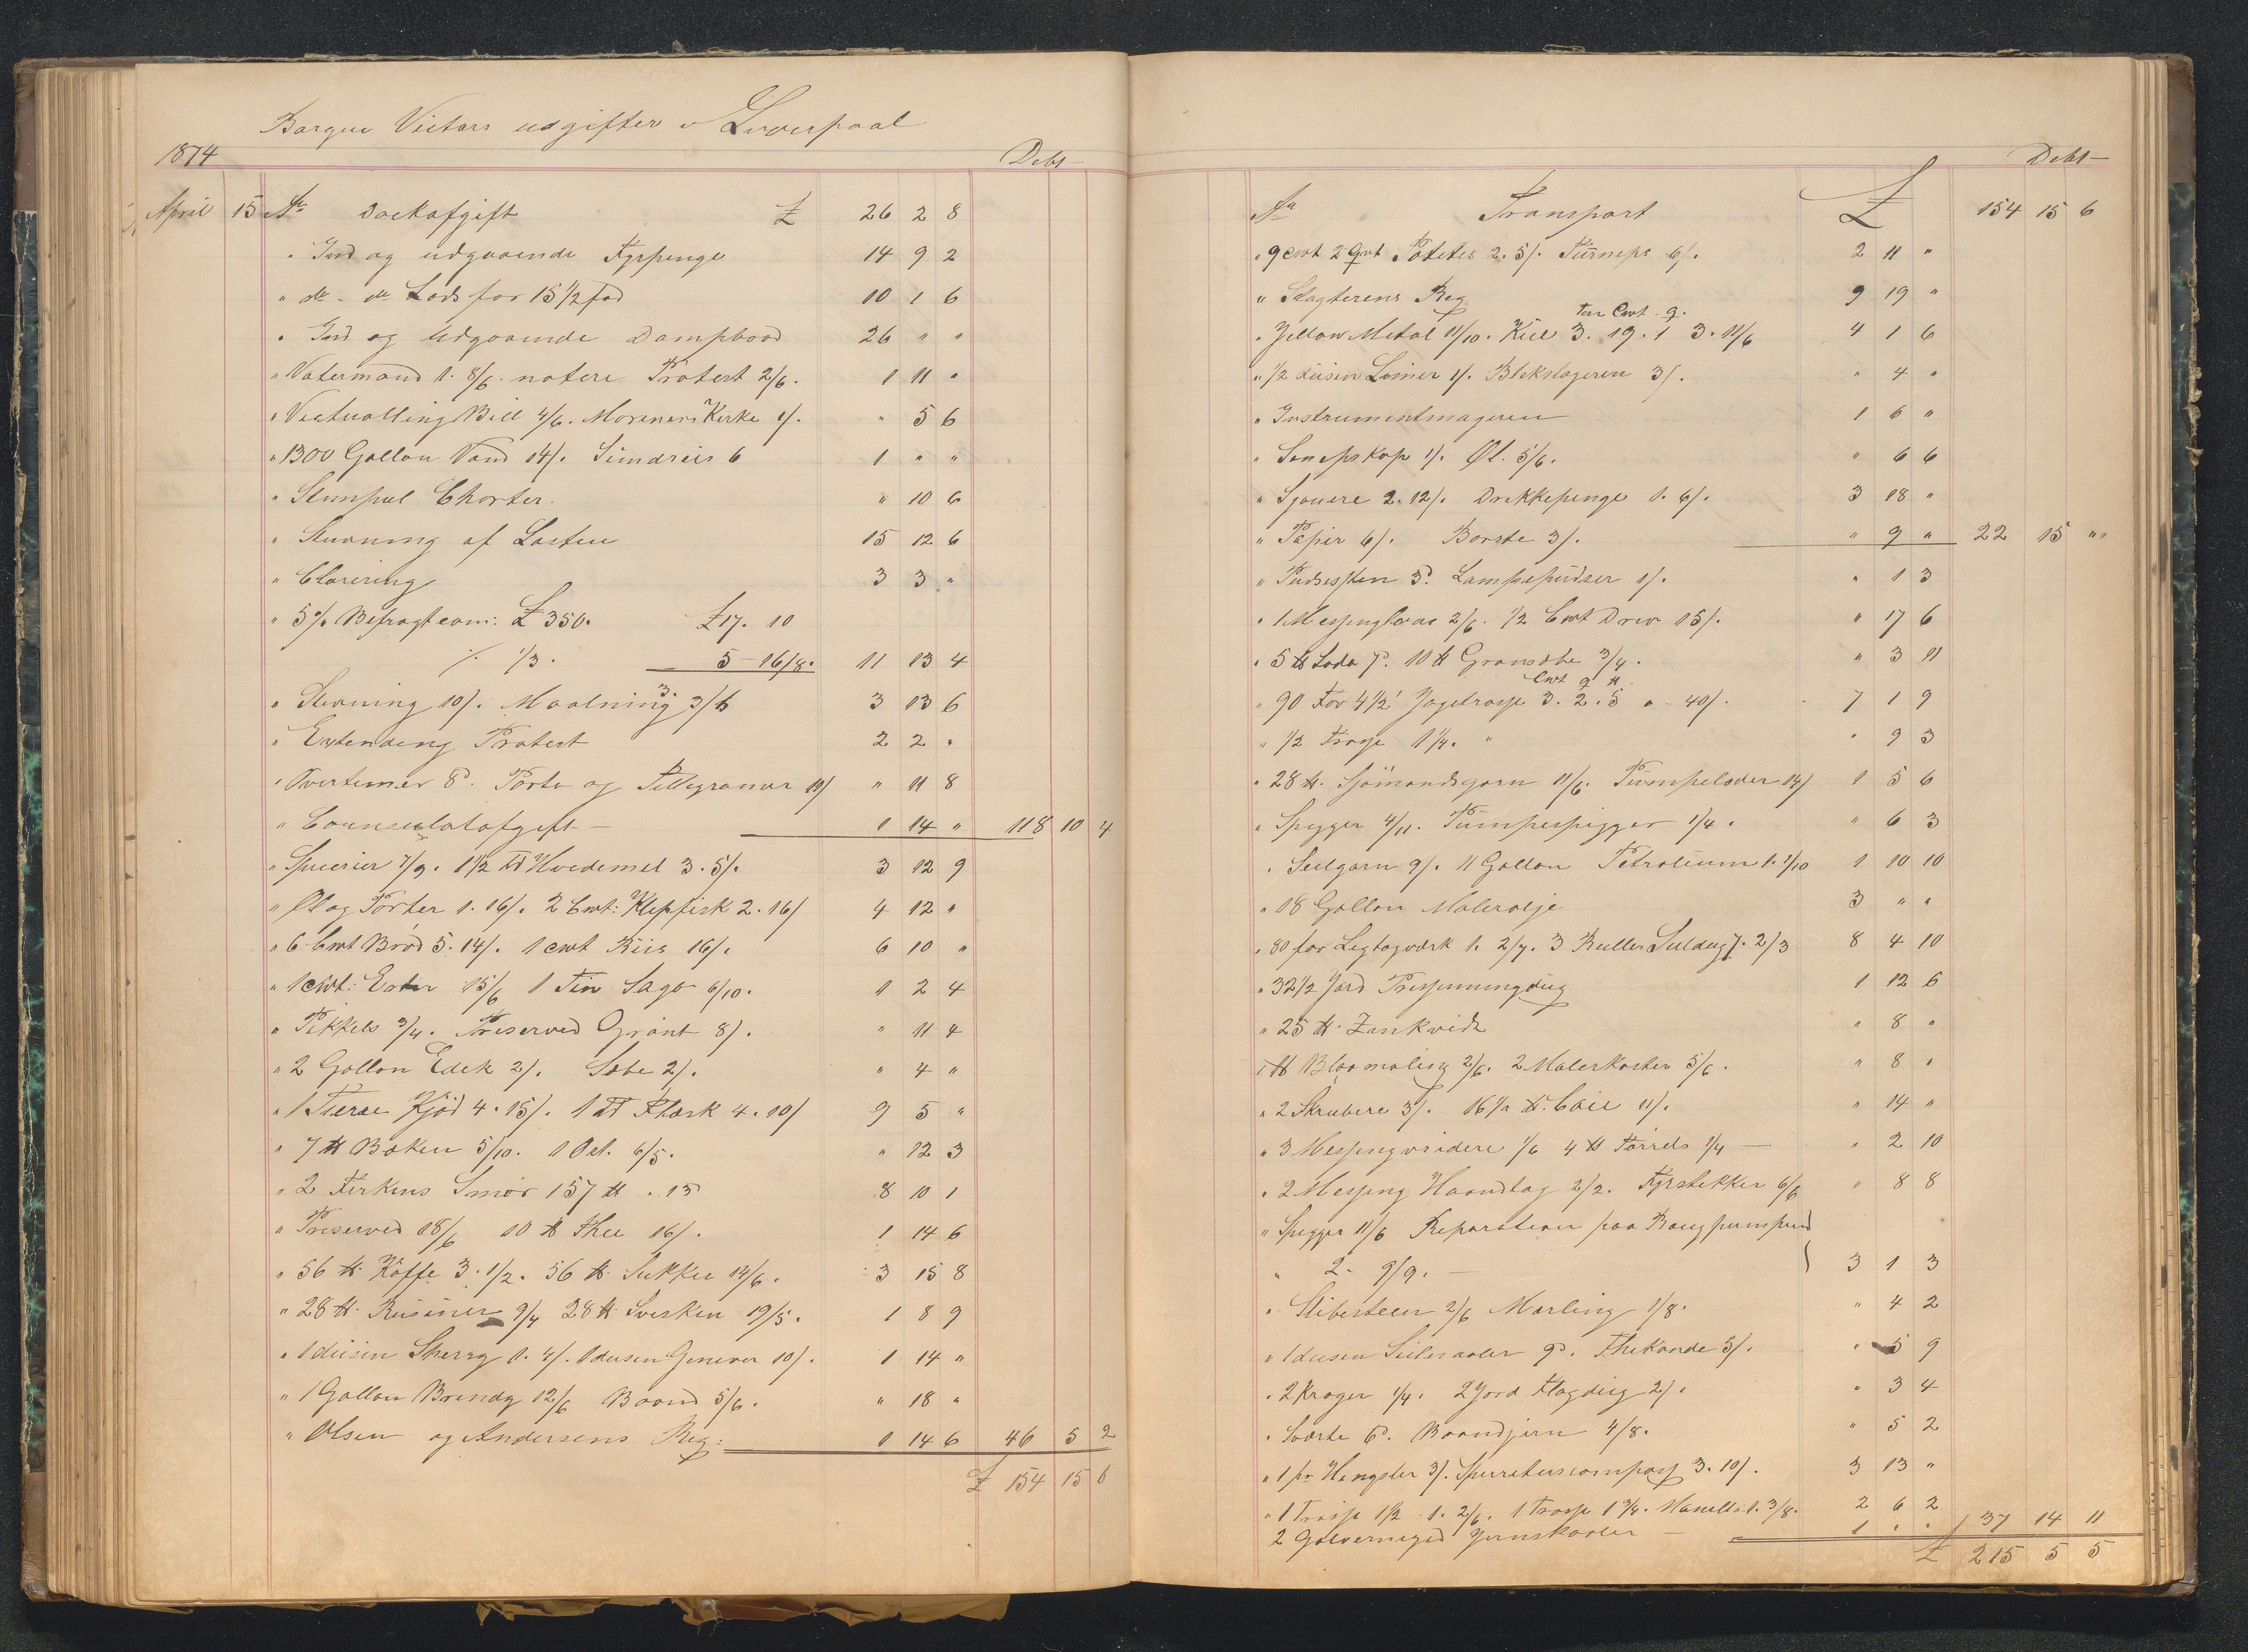 Barque Victors udgifter i Liverpool
1874 Debt
April 15 An Dockafgift £ 26 2 8
" Ind og udgaaende Fyrpenge 14 9 2
" do - do Lods for 15 1/2 fod 10 1 6
" Ind og Udgaaende Dampbaad 26 " "
" Vatermand 1. 8/6. notere Protest 2/6. 1 11 "
" Victualling Bill 4/6. Mariners Kirke 1/. " 5 6
" 1300 Gallon Vand 14/. Sundries 6 1 " "
" Stempul Charter. " 10 6
" Stuvning af Lasten 15 12 6
" Clarering 3 3 "
" 5% Befragtcom: £ 350. £17. 10
% 1/3. 5-16/8. 11 13 4
" Stuvning 10/. Maalning 3. 3/6 3 13 6
" Extending Protest 2 2 "
" Overtimer 8d. Porto og Tellegramer 11/ " 11 8
" Counsulatafgift - 1 14 " 118 10 4
" Specrier 7/9. 1 1/2 td Hvedemel 3. 5/. 3 12 9
" Øl og Porter 1. 16/. 2 Cwt: Klepfisk 2. 16/ 4 12 "
" 6 Cwt Brød 5. 14/. 1 cwt Riis 16/. 6 10 "
" 1 cwt: Erter 15/6 1 Tin Sago 6/10. 1 2 4
" Pikkels 3/4. Preserved Grønt 8/. " 11 4
" 2 Gallon Edek 2/. Sæbe 2/. " 4 "
" 1 Tierce Kjød 4. 15/. 1 Td Flæsk 4. 10/ 9 5 "
" 7 ℔ Baken 5/10. 1 Ost. 6/5. " 12 3
" 2 Ferkins Smør 157 ℔ . 13 8 10 1
" Preserved 18/6 10 ℔ Thee 16/. 1 14 6
" 56 ℔ Kaffe 3. 1/2. 56 ℔ Sukker 14/6. 3 15 8
" 28 ℔ Rusiner 9/4 28 ℔ Svesken 19/5. 1 8 9
" 1 dusin Sherry 1. 4/. 1 dusen Genever 10/. 1 14 "
" 1 Gallon Brendy 12/6 Baand 5/6. " 18 "
" Olsen og Andersens Reg: 1 14 6 46 5 2
£ 154 15 6
Debt
An Transport £ 154 15 6
" 9 cwt 2 Qwt Poteter 2. 5/. Turneps 6/. 2 11 "
" Slagterens Reg 9 19 "
Ton Cwt q.
" Yellow Metal 11/10. Kul 3. 19. 1 3. 11/6 4 1 6
" 1/2 dusin Limer 1/. Blekslageren 3/. " 4 "
" Instrumentmageren 1 6 "
" Senepskop 1/. Øl. 5/6. " 6 6
" Sjouere 2. 12/. Drikkepenge 1. 6/. 3 18 "
" Papir 6/. Borste 3/. " 9 " 22 15 "
" Pudsesten 3d. Lampepudser 1/. " 1 3
" 1 Messinglaas 2/6. 1/2 Cwt Drev 15/. " 17 6
" 5 ℔ Soda 7d. 10 ℔ Grønsæbe 3/4. " 3 11
Cwt q ℔
" 90 Fav 4 1/2' Jagetrosse 3. 2. 5 a 40/. 7 1 9
" 1/2 Trosse 1 1/4. " " 9 3
" 28 ℔ Sjømandsgarn 11/6. Pumpelæder 14/ 1 5 6
" Spigger 4/11. Pumpespigger 1/4. " 6 3
" Seilgarn 9/. 11 Gallon Petrolium 1. 1/10 1 10 10
" 18 Gallon Malerolje 3 " "
" 80 fav Legtagværk 1. 2/7. 3 Ruller Seildug 7. 2/3 8 4 10
" 32 1/2 Jard Presenningdug 1 12 6
" 25 ℔ Zinkvidt " 8 "
" ℔ Blaamaling 2/6. 2 Malerkoster 5/6. " 8 "
" 2 Skrubere 3/. 16 1/2 ℔ Coie 11/. " 14 "
" 3 Messingvridere 1/6 4 ℔ Tørrels 1/4 - " 2 10
" 2 Messing Haandtag 2/2. Fyrstikker 6/6 " 8 8
" Spigger 11/6 Reparation paa Baugpumpen
" 2. 9/9. - 3 1 3
" Slibesteen 2/6 Marling 1/8. " 4 2
" 1 dusen Seilnaaler 9d. Thekande 5/. " 5 9
" 2 Kroger 1/4. 2 Yard Flagdug 2/. " 3 4
" Sværte 6d. Baandjern 4/8. " 5 2
" 1 pr Hengsler 3/. Spirituscompas 3. 10/. 3 13 "
" 1 Trosse 1 1/2 1. 2/6. 1 Trosse 1 3/4. Manella 1. 3/8. 2 6 2
2 Galverniged Jernskaaler - 1 . . 37 14 11
£ 215 5 5